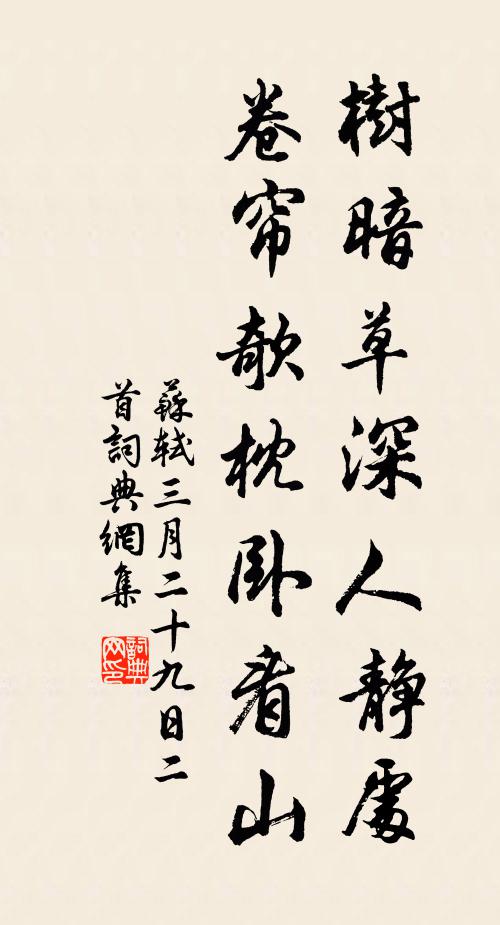 樹暗草深人靜處
卷帘欹枕臥看山
蘇軾三月二十九日二
首詞典網集
詞典
网印